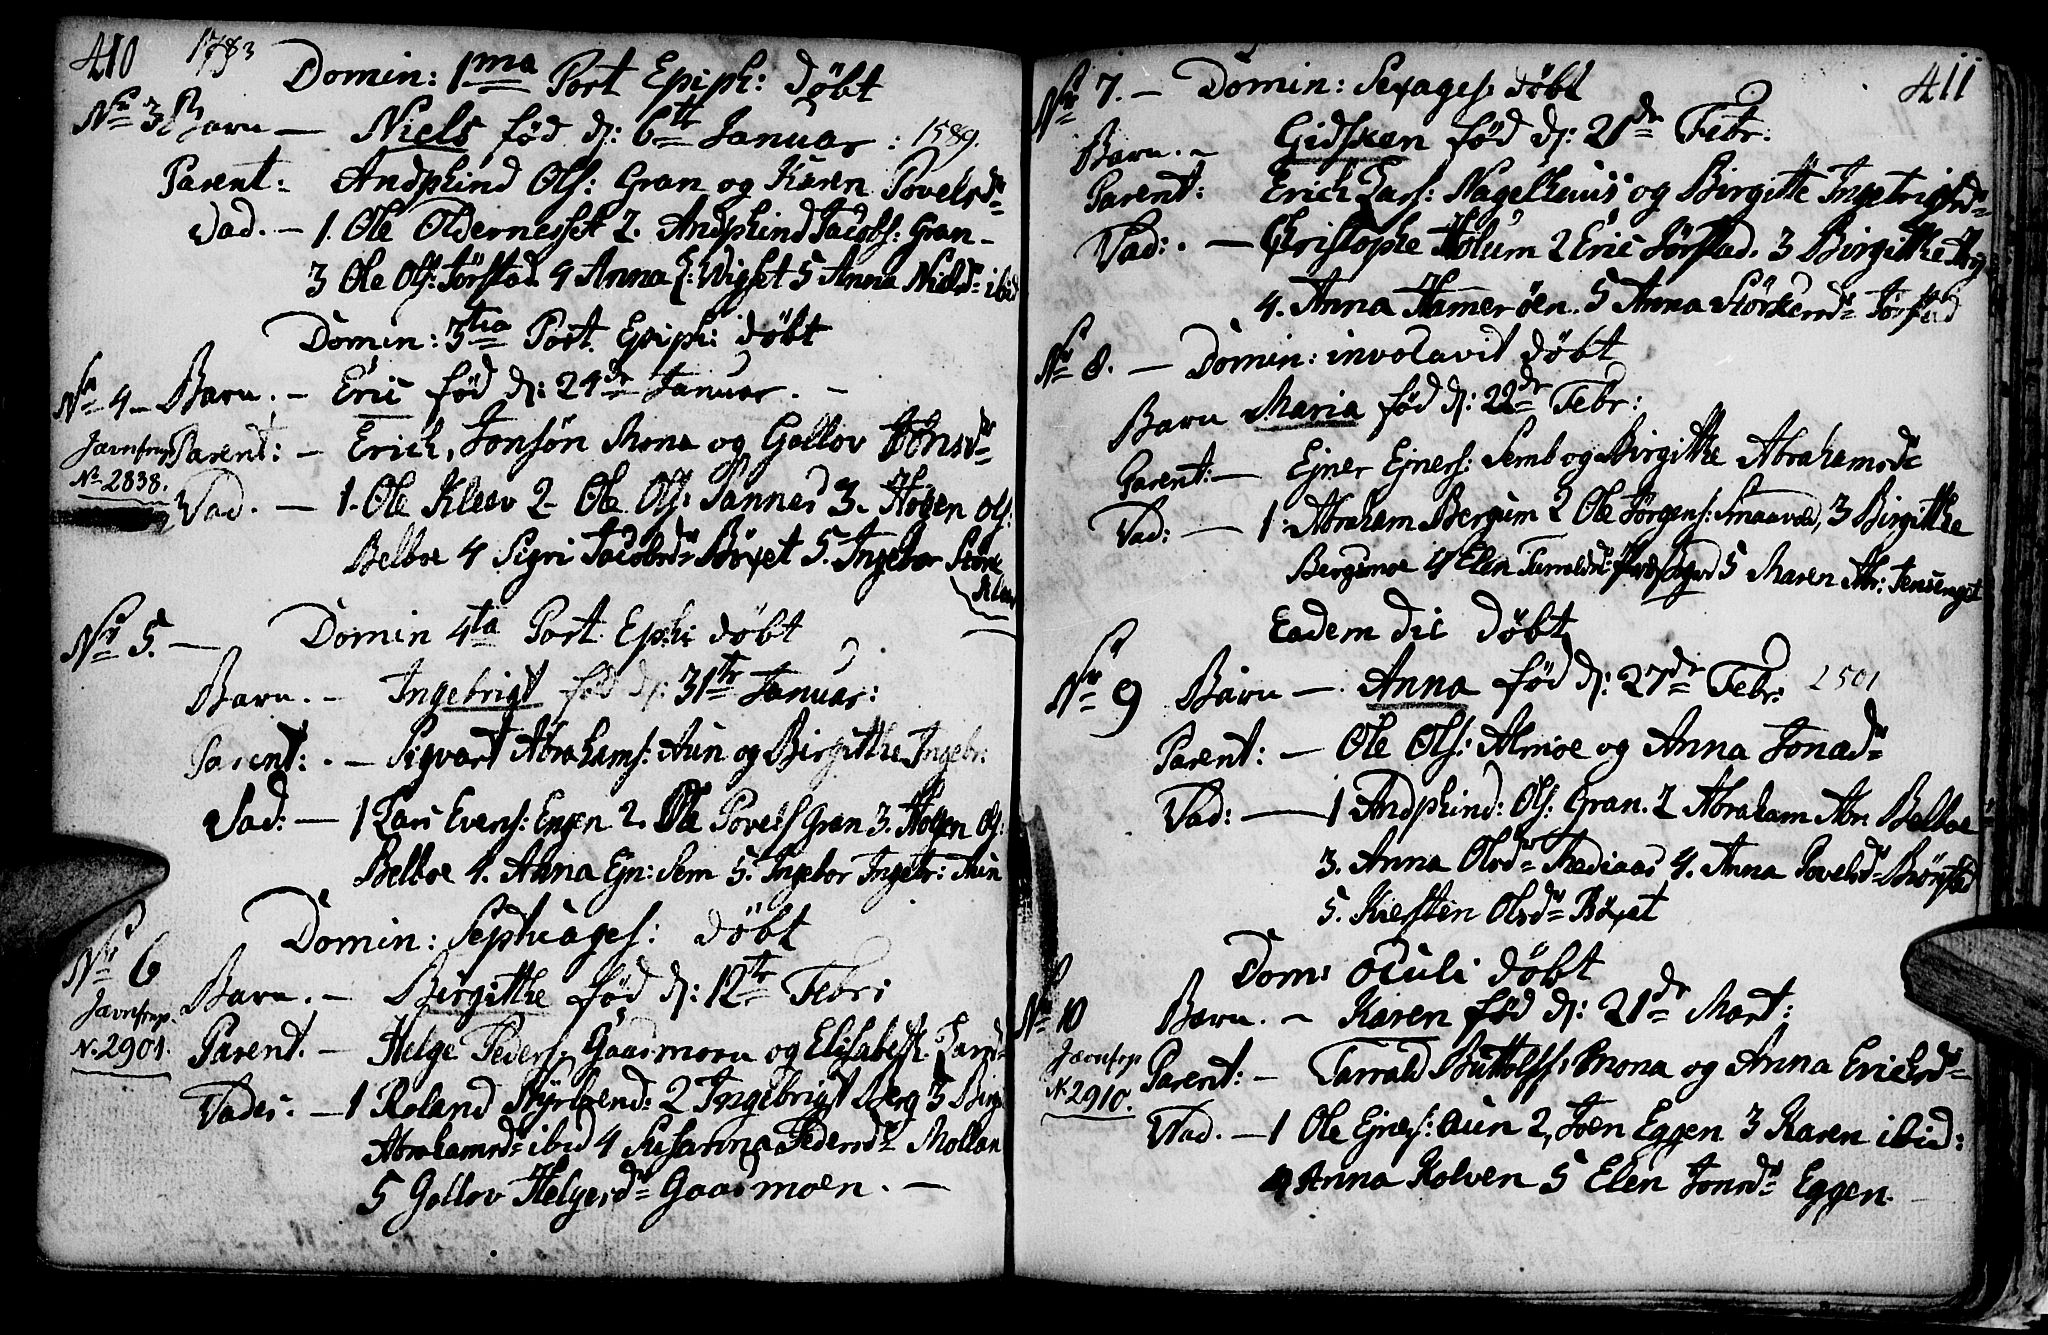 410 1783
Domin: 1ma Post Epiph: døbt
No 3 Barn — Niels fød d: 6te Januar: 1589.
Parent: Andphind Ols: Gran og Karen Povelsd:
Fad. — 1. Ole Oldernesset 2. Andphind Jacobs: Gran —
3 Ole Ols:Førstad 4 Anna L: Wigset 5 Anna Nielsd: ibid
Domin: 3tia Post Epiph: døbt
No 4 — Barn. — Eric fød d: 24de Januar. —
Jævnførep Parent: — Erich Jonsøn Mona og Gollov Jonsd:
No 2838.
Fad. — 1. Ole Kleev 2 Ole Ols: Sannes 3. Hogen Ols:
Belboe 4 Sigri Jacobsd: Bøxet 5. Ingebor Store
Kleev
No 5. — Domin 4ta Post Eph: døbt
Barn. — Ingebrigt fød d: 31te Januar:
Parent: . — Sigvart Abrahams: Aun og Birgitthe Ingebr:
Fad: — 1 Lars Evens: Engen 2. Ole Povels Gran 3. Hogen Ols:
Belboe 4. Anna Ejn: Sem 5. Ingebor Ingebr: Aun
Domin: Septuages: døbt
No 6
Barn. — Birgitthe fød d: 12te Febr:
Jævnførep.
N. 2901. Parent. — Helge Peders: Gaasmoen og Elisabeth Land
Fader. — 1 Roland Styrband: 2 Ingebrigt Berg 3 Birgi
Abrahamsd: ibid 4 Susanna Pedersd: Mollan
5 Gollov Helgesd: Gaasmoen. —
411
No 7. — Domin: Sexages: døbt
Barn. — Gidsken fød d: 21de Febr:
Parent: Erich Lars: Nagelhuus og Birgitte Ingebrigtsd:
Fad: . — Christophe Holum 2 Eric Førstad. 3 Birgitthe
4. Anna Hamerøen. 5 Anna Størkersd: Førstad
No 8. — Domin: invocavit døbt
Barn Maria fød d: 22de Febr:
Parent: — Ejner Ejners: Semb og Birgitthe Abrahamsd:
Fad: — 1. Abraham Bergum 2 Ole Jørgens: Smaavold, 3 Birgitthe
Bergsmoe 4 Elen 5 Maren Abr: Jensenget
Eadem die døbt
No 9 Barn — Anna fød d: 27de Febr: 2501
Parent: — Ole Ols: Almoe og Anna Jonæd:
Fad: — 1 Andphind: Ols: Gran. 2 Abraham Abr: Belboe
3. Anna Olsd: Mediaas 4. Anna Povelsd: Brørstad
5. Kiersten Olsd: Bøxet
Dom: Oculi døbt
No 10 Barn. — Karen fød d: 21de Mart:
Jævnførep
N. 2910. Parent: — Tarrald Buttolfs: Mona og Anna Ericksd:
Fad. — 1 Ole Ejners: Aun 2, Joen Eggen 3 Karen ibid:
4 Anna Kolven 5 Elen Jonsd: Eggen.